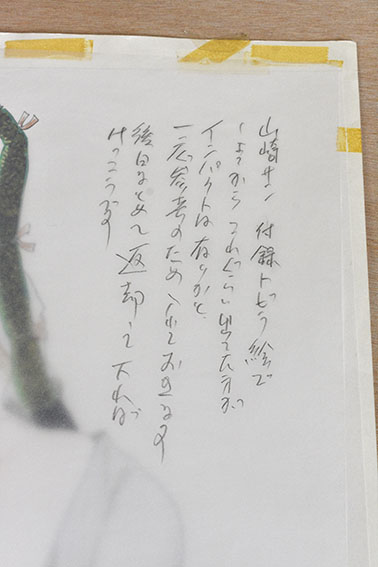 山崎サン 付録トビラ絵で
しょうから これぐらい出て大方が
インパクトは有りかと
一応参考のため 入れておきます
後日まとめて返却して下れば
けっこうです